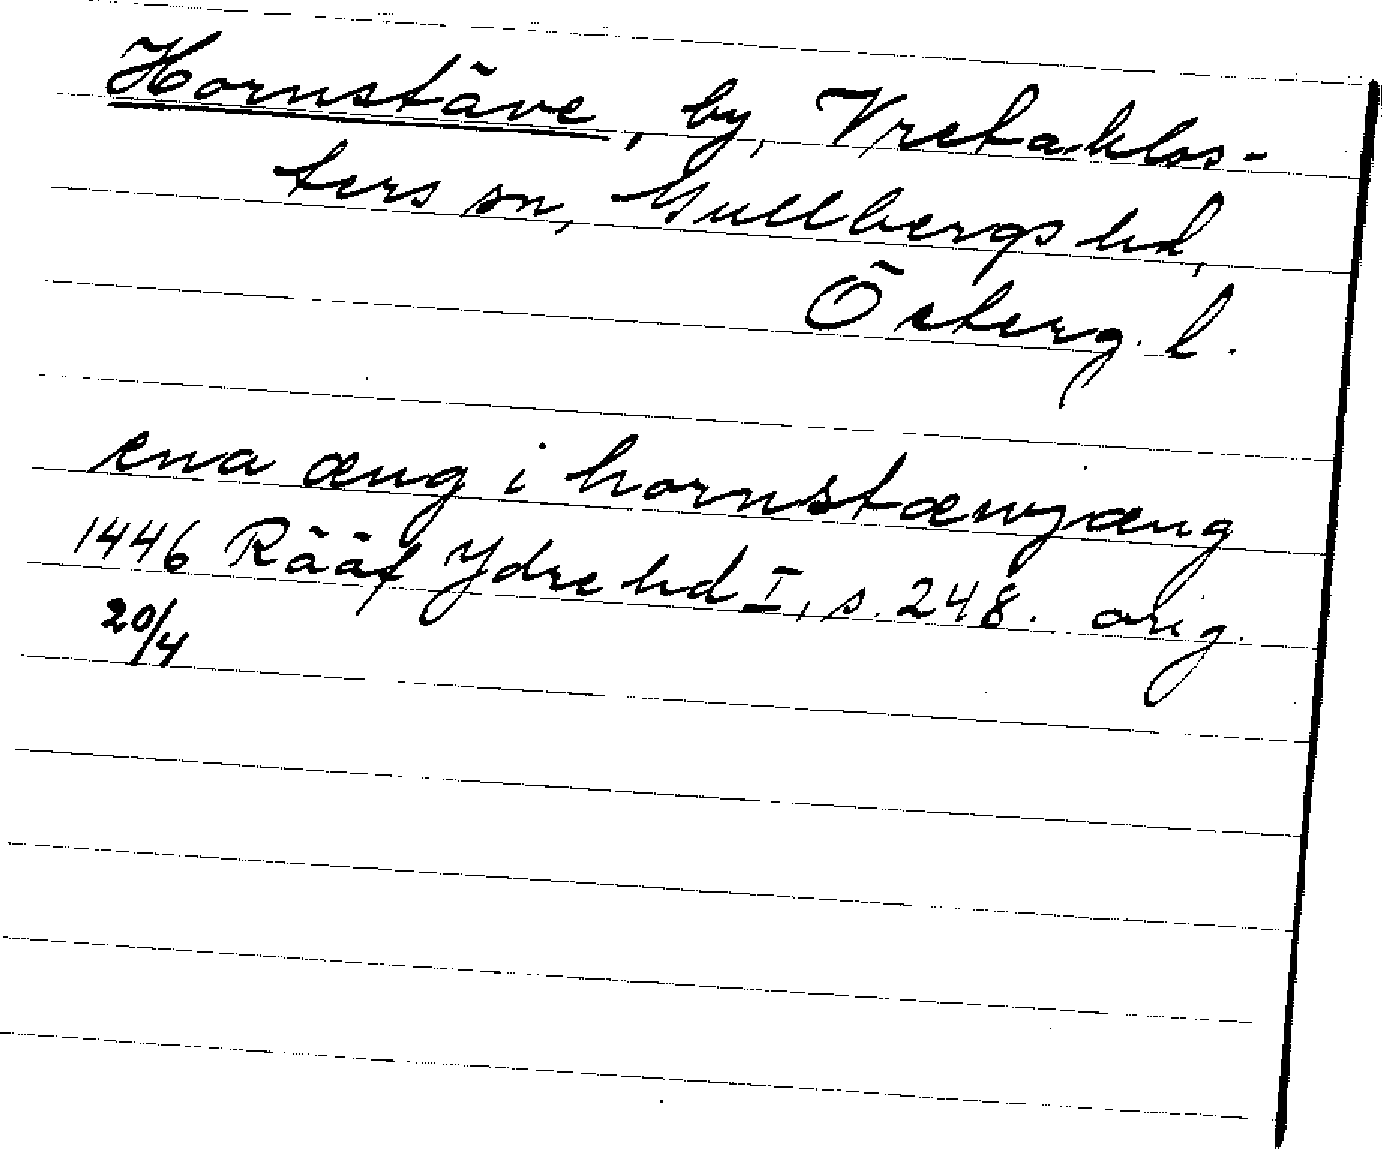 Hornstäve, by, Vretaklos-
ters sn, Gullbergs hd,
Österg. l.
ena æng i hornstæwjæng
1446 Rääf Ydre hd I, s. 248. orig.
20/4